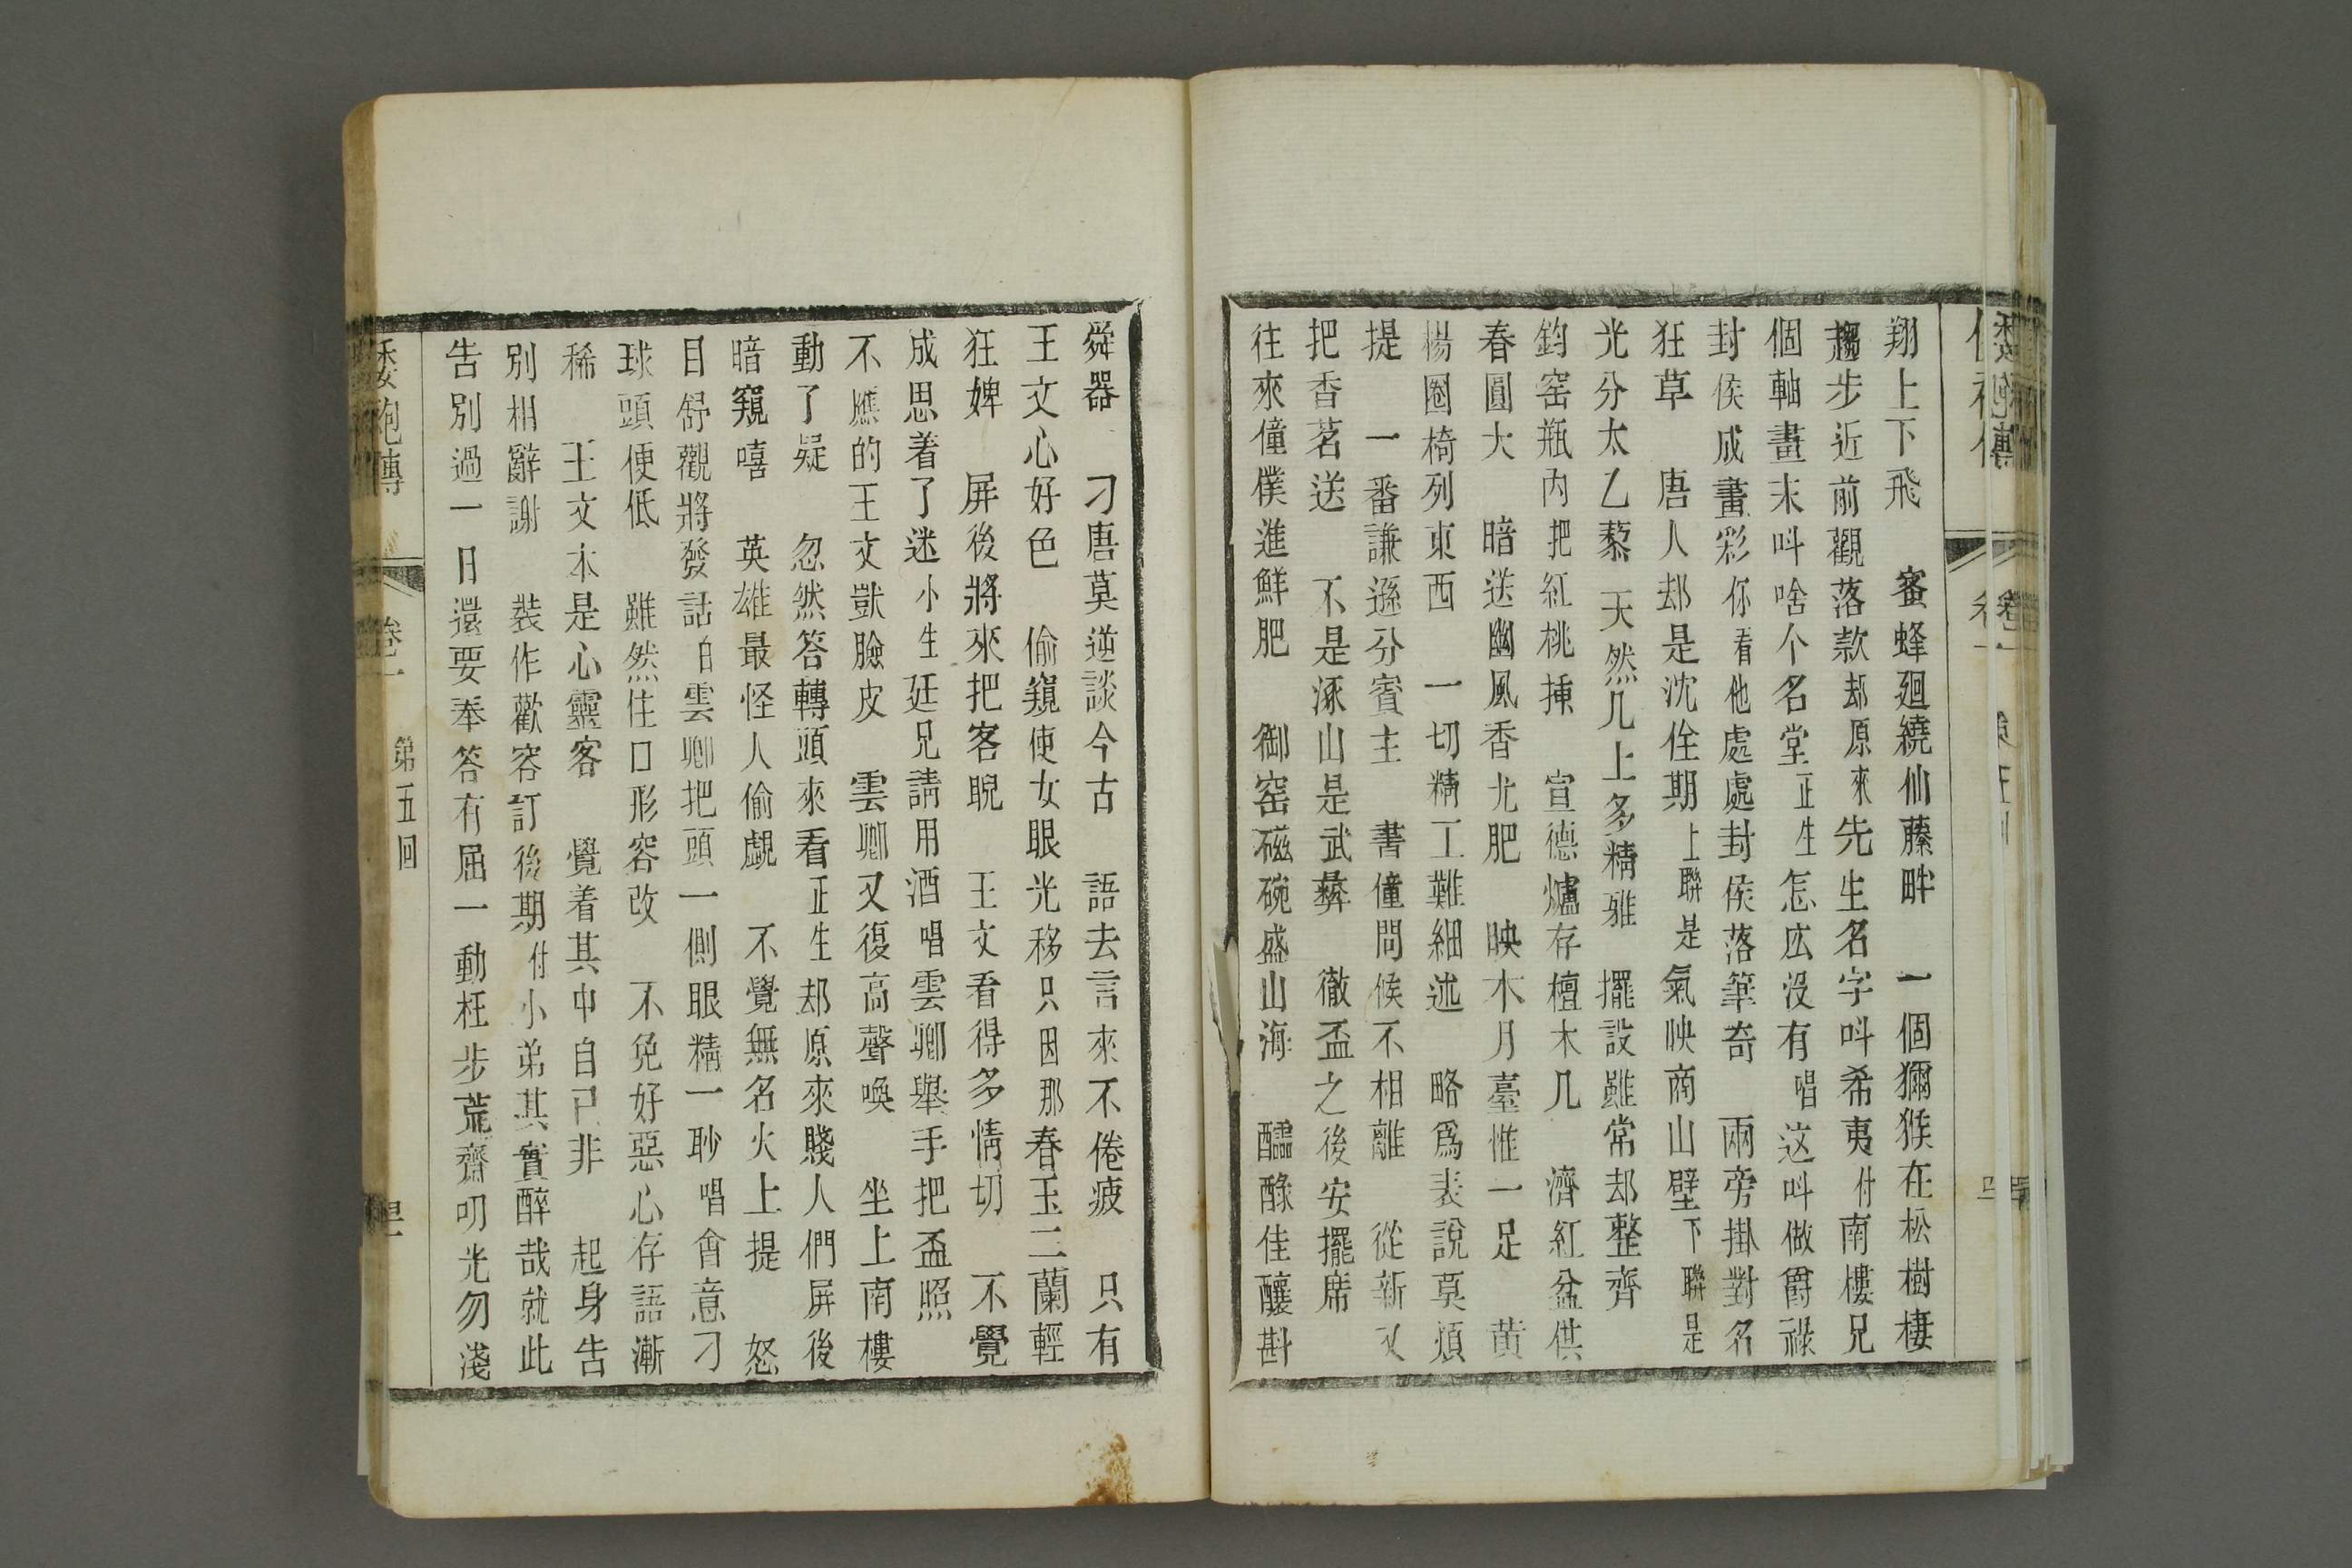 翔上下飛　蜜蜂廻繞仙藤畔　一個獼猴在松樹棲
趨步近前觀落款却原來先生名字呌希夷付南樓兄
個軸畫末呌啥个名堂正生怎庅沒有唱这呌做爵祿
封侯成畫彩你看他處處封侯落筆奇　兩旁掛對名
狂草　唐人却是沈佺期上聯是氣映商山壁下聯是
光分太乙藜　天然几上多精雅　擺設雖常却整齊
鈞窑瓶內把紅桃揷　宣德爐存檀木几　濟紅盆供
春圓大　暗送幽風香尤肥　映木月臺惟一足　黃
楊圈椅列東西　一切精工難細述　略爲表說莫煩
提　一番謙遜分賓主　書僮問候不相離　從新又
把香茗送　不是涿山是武彝　徹盃之後安擺席
往來僮僕進鮮肥　御窑磁碗盛山海　醽醁佳釀斟
舜器　刁唐莫逆談今古　語去言來不倦疲　只有
王文心好色　偷窺使女眼光移只因那春玉二蘭輕
狂婢　屏後將來把客睨　王文看得多情切　不覺
成思着了迷小生廷兄請用酒唱雲卿舉手把盃照
不應的王文獃臉皮　雲卿又復高聲喚　坐上南樓
動了疑　忽然答轉頭來看正生却原來賤人們屏後
暗窺嘻　英雄最怪人偷覷　不覺無名火上提　怒
目舒觀將發話白雲卿把頭一側眼精一眇唱會意刁
球頭便低　雖然住口形容改　不免好惡心存語漸
稀　王文本是心靈客　覺着其中自己非　起身告
別相辭謝　裝作歡容訂後期付小弟其實醉哉就此
告別過一日還要奉答有屈一動枉步荒齋叨光勿淺
袍傳　卷一　第五回